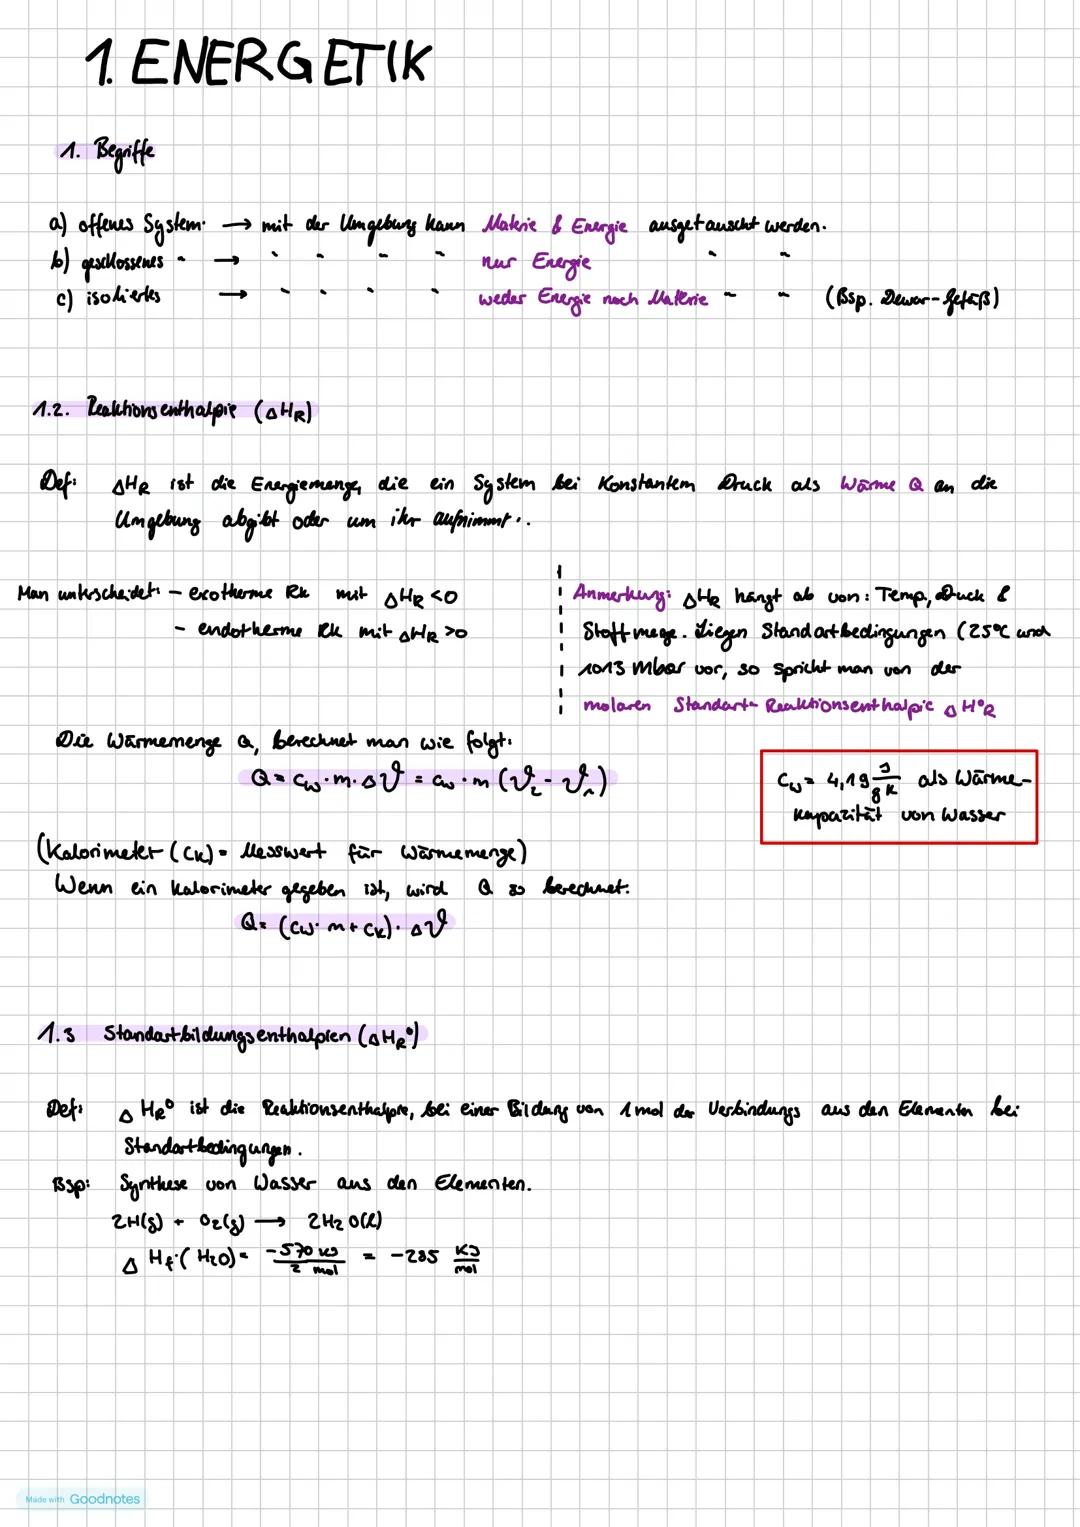 1. ENERGETIK
1. Begriffe
a) offenes System → mit der Umgebung kann Materie & Energie ausgetauscht werden.
b) geschlossenes " → " " " " nur Energie " "
c) isoliertes → " " " " weder Energie noch Materie " " (Bsp. Dewar-Gefäß)
1.2. Reaktionsenthalpie (ΔHR)
Def: ΔHR ist die Energiemenge, die ein System bei konstantem Druck als Wärme Q an die
Umgebung abgibt oder um ihr aufnimmt.
Man unterscheidet: - exotherme Rk mit ΔHR <0
- endotherme Rk mit ΔHR >0
Anmerkung: ΔHR hängt ab von: Temp., Druck &
Stoffmege. Liegen Standartbedingungen (25°C und
1013 mbar vor, so spricht man von der
molaren Standart-Reaktionsenthalpie ΔH°R
Die Wärmemenge Q, berechnet man wie folgt:
Q = cw · m · Δϑ = cw · m (ϑ2 - ϑ1)
cw = 4,19 J/gK als Wärme-
kapazität von Wasser
(Kalorimeter (CK) = Messwert für Wärmemenge)
Wenn ein Kalorimeter gegeben ist, wird Q so berechnet:
Q = (cw · m + CK) · Δϑ
1.3 Standartbildungsenthalpien (ΔHR°)
Def: ΔHR° ist die Reaktionsenthalpie, bei einer Bildung von 1 mol der Verbindungs aus den Elementen bei
Standartbedingungen.
Bsp: Synthese von Wasser aus den Elementen.
2H(g) + O2(g) → 2H2O(l)
ΔHf·(H2O) = -570 KJ / 2 mol = -285 KJ/mol
Made with Goodnotes